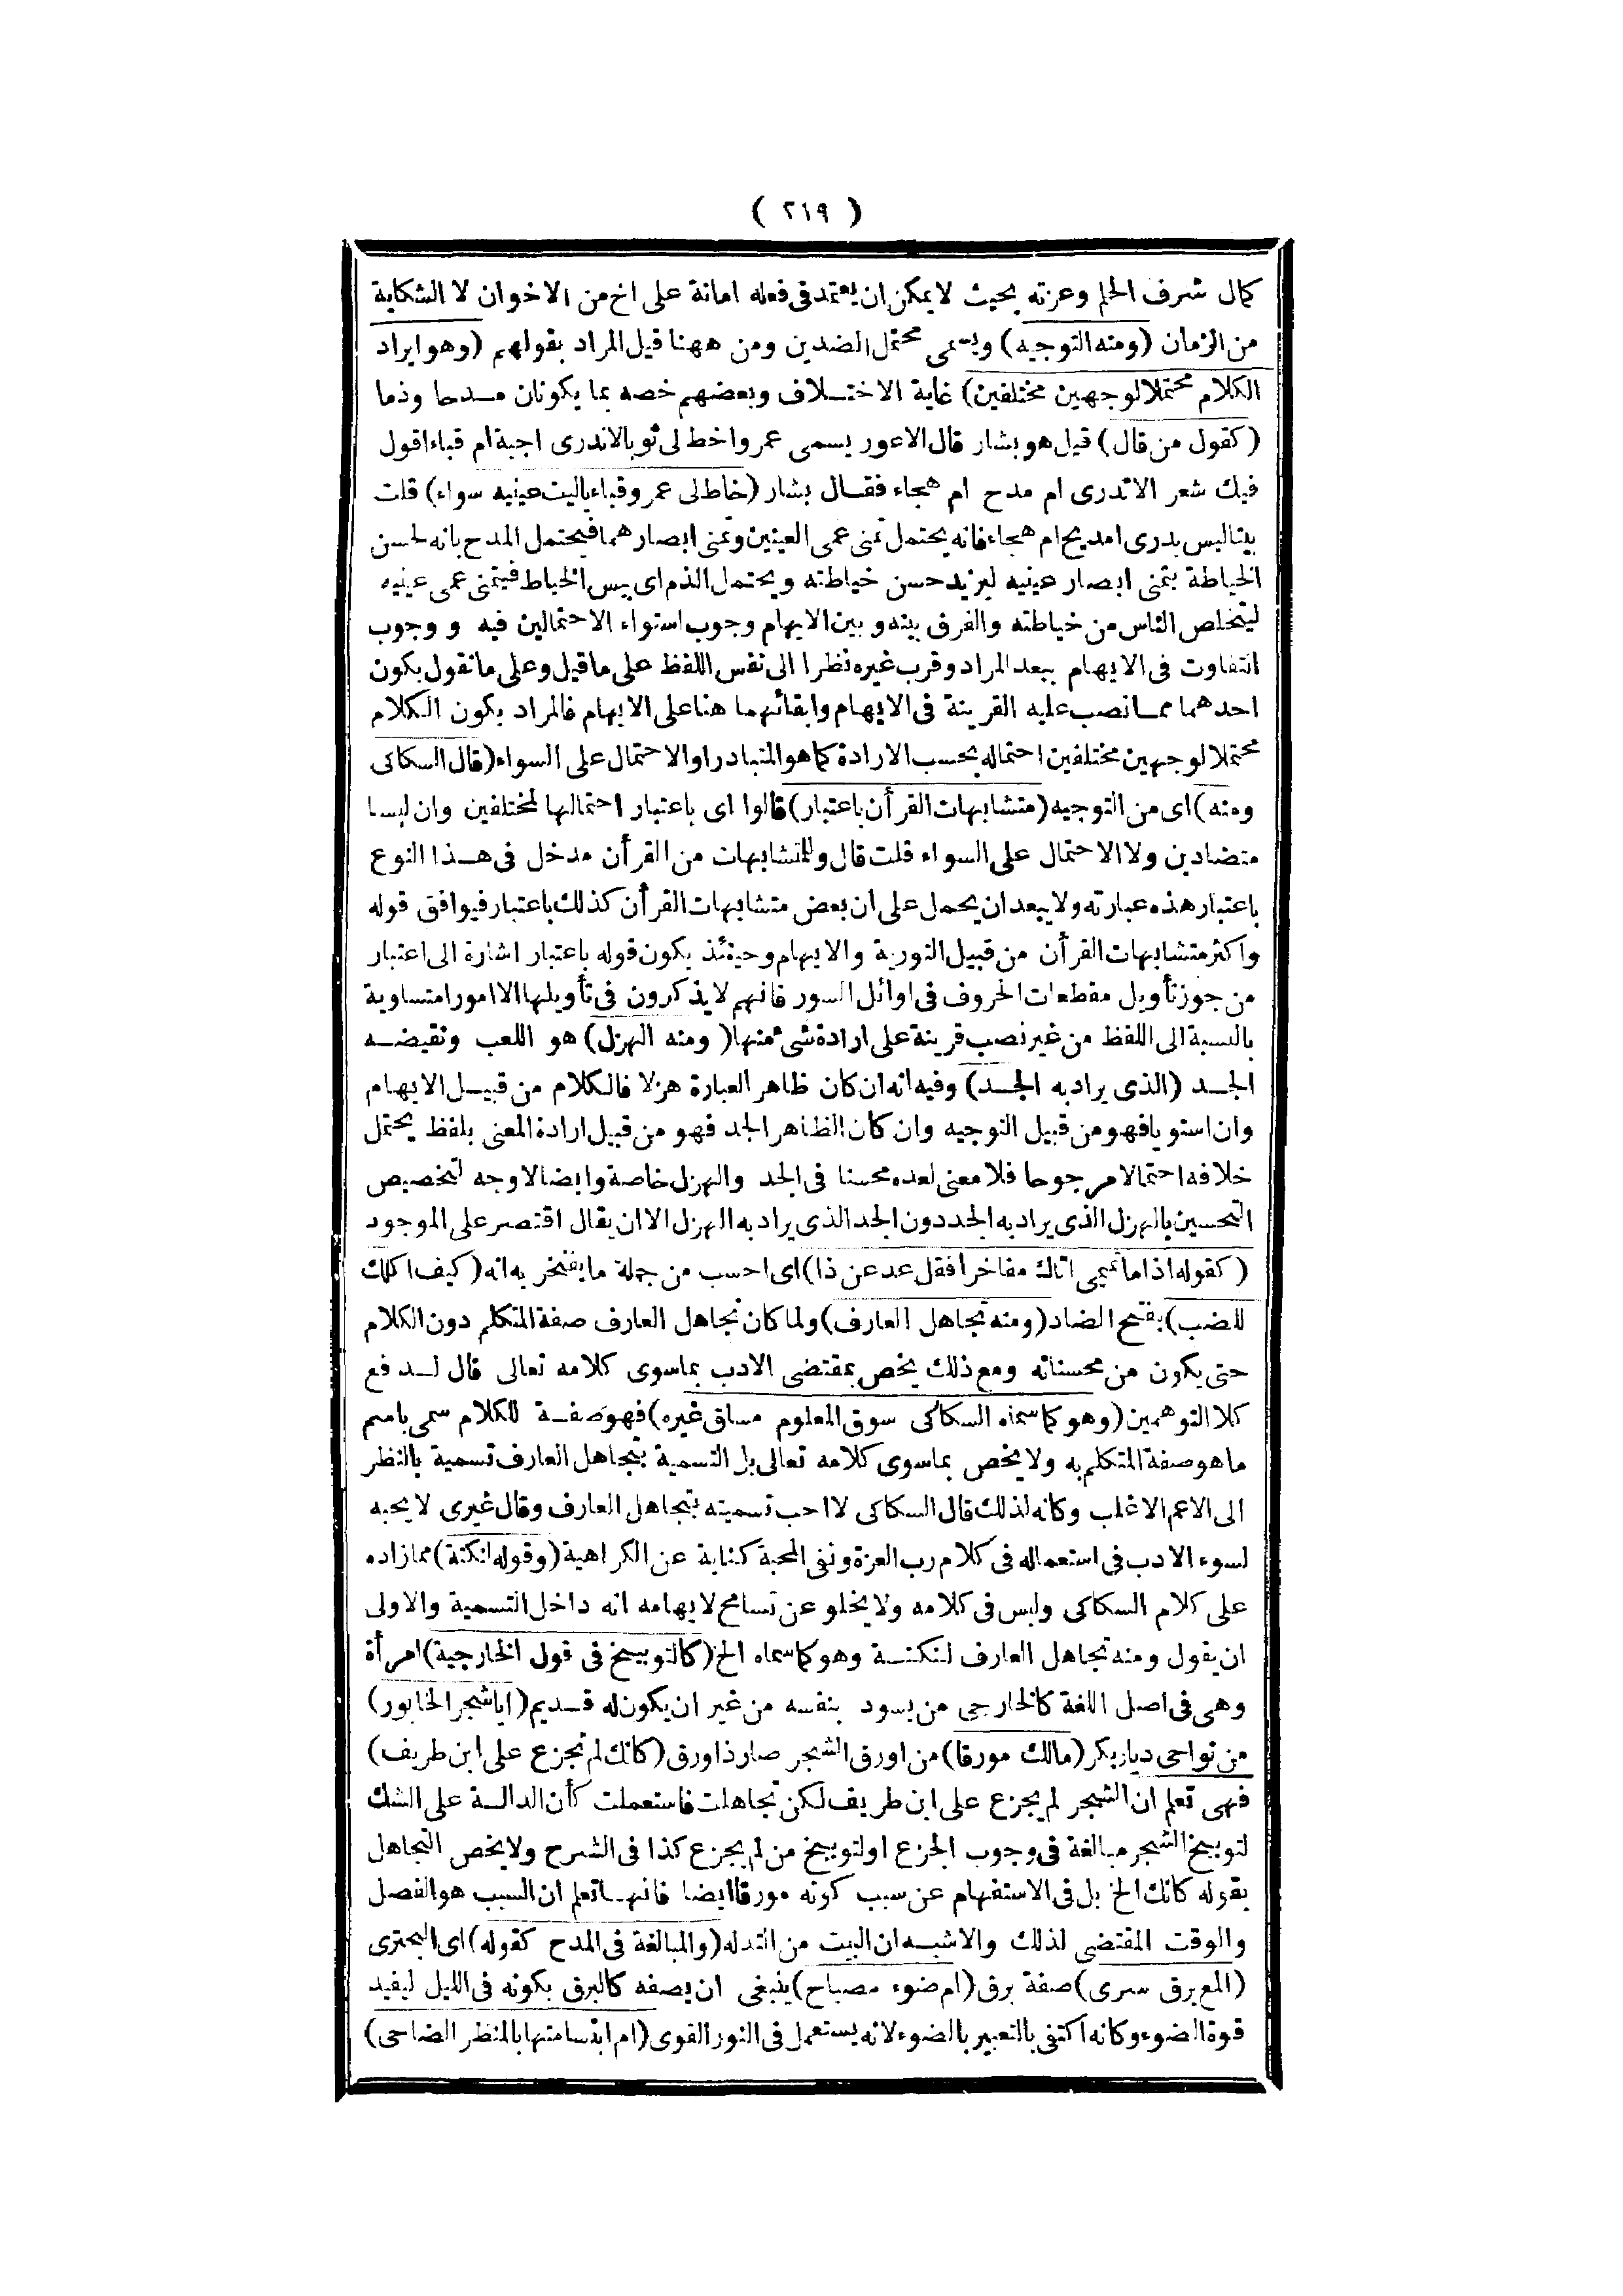 ( ٢١٩ )
كمال شرف الحلم وعزته بحيث لا يمكن ان يعتمد فى فعله امانة على اخ من الاخوان لا الشكاية
من الزمان (ومنه التوجيه) ويسمى محتمل الضدين ومن ههنا قيل المراد بقولهم (وهو ايراد
الكلام محتملا لوجهين مختلفين) غاية الاختلاف وبعضهم خصه بما يكونان مدحا وذما
(كقول من قال) قيل هو بشار قال الاعور يسمى عمروا خط لى ثوبا لا ندرى اجبة ام قباء اقول
فيك شعر الا تدرى ام مدح ام هجاء فقال بشار (خاط لى عمرو قباء ياليت عينيه سواء) قلت
بيتا ليس يدرى امديح ام هجاء فانه يحتمل تمنى عمى العينين وتمنى ابصارهما فيحتمل المدح بانه لحسن
الخياطة يتمنى ابصار عينيه ليزيد حسن خياطته ويحتمل الذم اى بيس الخياط فيتمنى عمى عينيه
ليتخلص الناس من خياطته والفرق بينه وبين الايهام وجوب استواء الاحتمالين فيه و وجوب
التفاوت فى الايهام ببعد المراد وقرب غيره نظرا الى نفس اللفظ على ماقيل وعلى ما نقول بكون
احدهما مما نصب عليه القرينة فى الايهام وابقائهما هنا على الابهام فالمراد بكون الكلام
محتملا لوجهين مختلفين احتماله بحسب الارادة كما هو المتبادر اوالاحتمال على السواء (قال السكاكى
ومنه) اى من التوجيه (متشابهات القرأن باعتبار) قالوا اى باعتبار احتمالها لمختلفين وان ليسا
متضادين ولا الاحتمال على السواء قلت قال وللمتشابهات من القرأن مدخل فى هذا النوع
باعتبار هذه عبارته ولا يبعد ان يحمل على ان بعض متشابهات القرأن كذلك باعتبار فيوافق قوله
واكثر متشابهات القرأن من قبيل التورية والايهام وحينئذ يكون قوله باعتبار اشارة الى اعتبار
من جوز تأويل مقطعات الحروف فى اوائل السور فانهم لا يذكرون فى تأويلها الا امورا متساوية
بالنسبة الى اللفظ من غير نصب قرينة على ارادة شئ منها (ومنه الهزل) هو اللعب ونقيضه
الجد (الذى يراد به الجد) وفيه انه ان كان ظاهر العبارة هزلا فالكلام من قبيل الايهام
وان استويا فهو من قبيل التوجيه وان كان الظاهر الجد فهو من قبيل ارادة المعنى بلفظ يحتمل
خلافه احتمالا مرجوحا فلا معنى لعده محسنا فى الجد والهزل خاصة وايضا لا وجه لتخصيص
التحسين بالهزل الذى يراد به الجد دون الجد الذى يراد به الهزل الا ان يقال اقتصر على الموجود
(كقوله اذا ما تميمى اتاك مفاخرا فقل عد عن ذا) اى احسب من جملة ما يفتخر به انه (كيف اكلك
للضب) بفتح الضاد (ومنه تجاهل العارف) ولما كان تجاهل العارف صفة المتكلم دون الكلام
حتى يكون من محسناته ومع ذلك يخص بمقتضى الادب بماسوى كلامه تعالى قال لدفع
كلا التوهمين (وهو كما سماه السكاكى سوق المعلوم مساق غيره) فهو صفة للكلام سمى باسم
ما هو صفة المتكلم به ولا يخص بماسوى كلامه تعالى بل التسمية بتجاهل العارف تسمية بالنظر
الى الاعم الاغلب وكانه لذلك قال السكاكى لا احب تسميته بتجاهل العارف وقال غيرى لا يحبه
لسوء الادب فى استعماله فى كلام رب العزة ونفى المحبة كناية عن الكراهية (وقوله لنكتة) مما زاده
على كلام السكاكى وليس فى كلامه ولا يخلو عن تسامح لايهامه انه داخل التسمية والاولى
ان يقول ومنه تجاهل العارف لنكتة وهو كما سماه الخ (كالتوبيخ فى قول الخارجية) امرأة
وهى فى اصل اللغة كالخارجى من يسود بنفسه من غير ان يكون له قديم (ايا شجر الخابور)
من نواحى ديار بكر (مالك مورقا) من اورق الشجر صار ذا ورق (كانك لم تجزع على ابن طريف)
فهى تعلم ان الشجر لم يجزع على ابن طريف لكن تجاهلت فاستعملت كأن الدالة على الشك
لتوبيخ الشجر مبالغة فى وجوب الجزع او لتوبيخ من لم يجزع كذا فى الشرح ولا يخص التجاهل
بقوله كانك الخ بل فى الاستفهام عن سبب كونه مورقا ايضا فانها تعلم ان السبب هو الفصل
والوقت المقتضى لذلك والاشبه ان البيت من التدله (والمبالغة فى المدح كقوله) اى البحترى
(المع برق سرى) صفة برق (ام ضوء مصباح) ينبغى ان يصفه كالبرق بكونه فى الليل ليفيد
قوة الضوء وكانه اكتفى بالتعبير بالضوء لانه يستعمل فى النور القوى (ام ابتسامتها بالمنظر الضاحى)